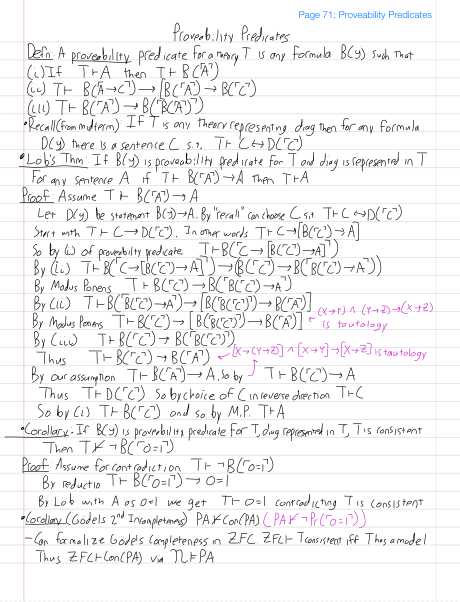 Page 71: Proveability Predicates
Proveability Predicates
Defn: A proveability predicate for a theory T is any formula B(y) such that
(i) If T⊢A then T⊢B(⌜A⌝)
(ii) T⊢ B(⌜A→C⌝)→[B(⌜A⌝)→B(⌜C⌝)]
(iii) T⊢ B(⌜A⌝)→B(⌜B(⌜A⌝)⌝)
•Recall (from midterm): If T is any theory representing diag then for any formula
D(y) there is a sentence C s.t. T⊢ C↔D(⌜C⌝)
•Lob's Thm: If B(y) is proveability predicate for T and diag is represented in T
For any sentence A if T⊢B(⌜A⌝)→A then T⊢A
Proof: Assume T⊢ B(⌜A⌝)→A
Let D(y) be statement B(y)→A. By "recall" can choose C s.t. T⊢C↔D(⌜C⌝)
Start with T⊢C→D(⌜C⌝). In other words T⊢C→[B(⌜C⌝)→A]
So by (i) of proveability predicate T⊢B(⌜C→[B(⌜C⌝)→A]⌝)
By (ii) T⊢B(⌜C→[B(⌜C⌝)→A]⌝)→(B(⌜C⌝)→B(⌜B(⌜C⌝)→A⌝))
By Modus Ponens T⊢B(⌜C⌝)→B(⌜B(⌜C⌝)→A⌝)
By (ii) T⊢B(⌜B(⌜C⌝)→A⌝)→[B(⌜B(⌜C⌝)⌝)→B(⌜A⌝)]
By Modus Ponens T⊢B(⌜C⌝)→[B(⌜B(⌜C⌝)⌝)→B(⌜A⌝)] ← (X→Y)∧(Y→Z)→(X→Z) is tautology
By (iii) T⊢B(⌜C⌝)→B(⌜B(⌜C⌝)⌝)
Thus T⊢B(⌜C⌝)→B(⌜A⌝) ← [X→(Y→Z)]∧[X→Y]→[X→Z] is tautology
By our assumption T⊢B(⌜A⌝)→A, so by T⊢B(⌜C⌝)→A
Thus T⊢D(⌜C⌝). So by choice of C in reverse direction T⊢C
So by (i) T⊢B(⌜C⌝) and so by M.P. T⊢A
•Corollary: If B(y) is proveability predicate for T, diag represented in T, T is consistent
Then T⊬¬B(⌜0=1⌝)
Proof: Assume for contradiction T⊢¬B(⌜0=1⌝)
By reductio T⊢B(⌜0=1⌝)→0=1
By Löb with A as 0=1 we get T⊢0=1 contradicting T is consistent
•Corollary (Gödel's 2nd Incompleteness) PA⊬Con(PA) (PA⊬¬Pr(⌜0=1⌝))
-Can formalize Gödel's Completeness in ZFC. ZFC⊢T consistent iff T has a model
Thus ZFC⊢Con(PA) via 𝒩⊨PA